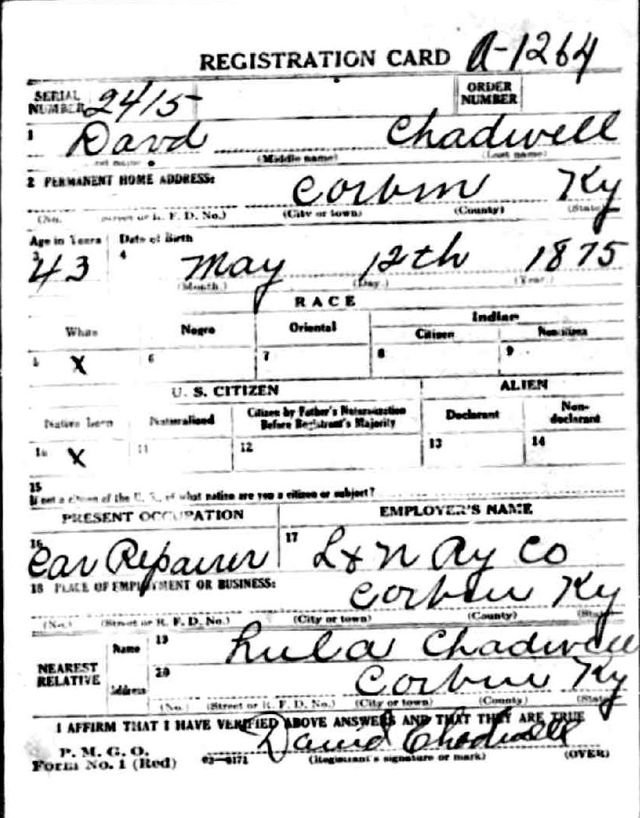 REGISTRATION CARD A-1264
SERIAL NUMBER 2415 ORDER NUMBER
1 Davd Chadwell
(Middle name) (Last name)
2 PERMANENT HOME ADDRESS: Corbin Ky
(No. Street or R. F. D. No.) (City or town) (County) (State)
Age in Years Date of Birth
3 43 4 May 12th 1875
(Month.) (Day.) (Year.)
RACE
White Negro Oriental Indian
Citizen Noncitizen
5 X 6 7 8 9
U. S. CITIZEN ALIEN
Native Born Naturalized Citizen by Father's Naturalization Before Registrant's Majority Declarant Non-declarant
10 X 11 12 13 14
15
If not a citizen of the U. S., of what nation are you a citizen or subject?
PRESENT OCCUPATION EMPLOYER'S NAME
16 Car Repairer 17 L & N Ry Co
18 PLACE OF EMPLOYMENT OR BUSINESS: Corbin Ky
(No.) (Street or R. F. D. No.) (City or town) (County) (State)
NEAREST RELATIVE Name 19 Lula Chadwell
Address 20 Corbin Ky
(No.) (Street or R. F. D. No.) (City or town) (County) (State)
I AFFIRM THAT I HAVE VERIFIED ABOVE ANSWERS AND THAT THEY ARE TRUE
P. M. G. O.
Form No. 1 (Red) 03-6171 David Chadwell (Registrant's signature or mark) (OVER)